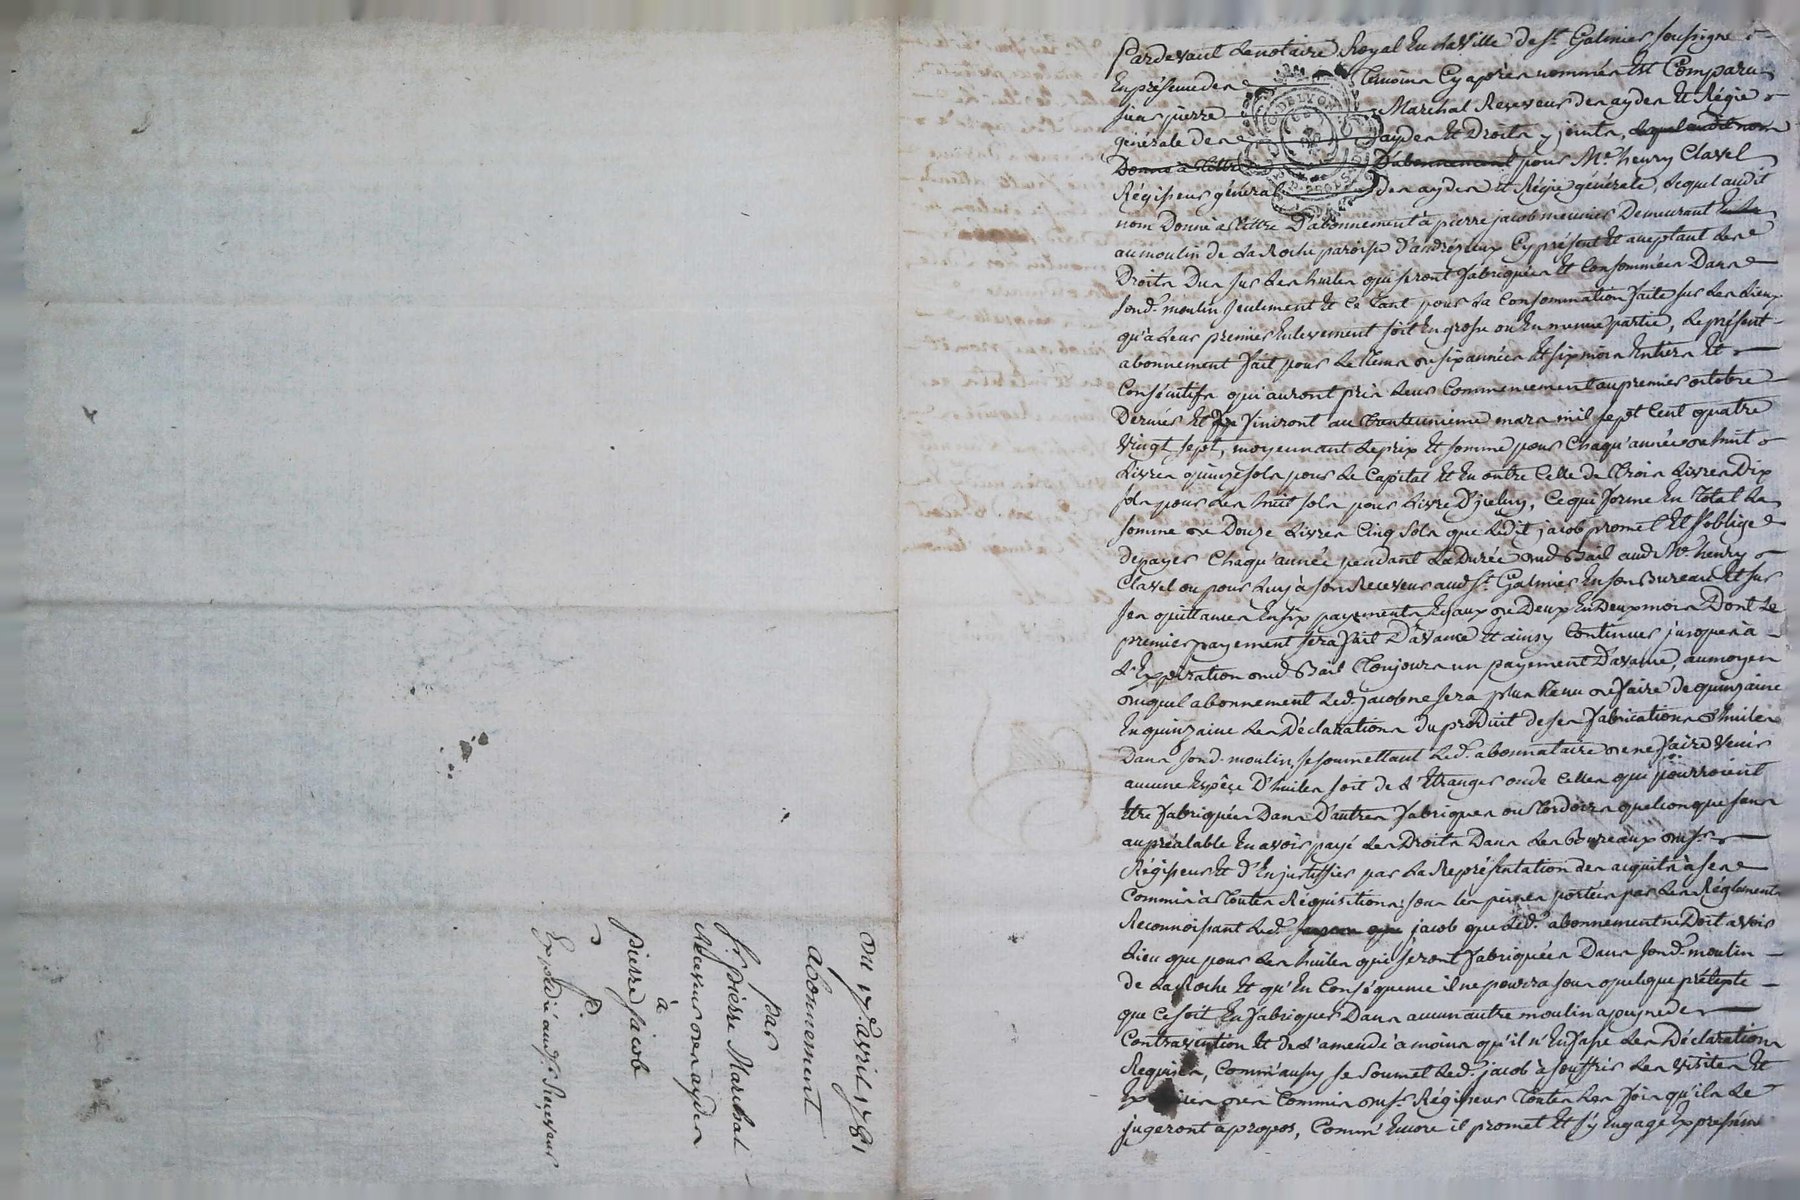 Du 17e. avril 1781
abonnement
par
Sr. pierre Marechal
Receveur des aydes
à
pierre Jacob
Expédié aud. Sr. Receveur
Pardevant Le notaire Royal En La Ville de St. Galmier soussigné
En présence des Temoins Cy après nommés Est Comparu
sieur pierre Marechal Receveur des aydes Et Régie
générale des aydes Et Droits y joints, Lequel audit nom
Donne à Titre D'abonnement pour Mre. henry Clavel
Régisseur général des aydes Et Régie générale, Lequel audit
nom Donne à Tittre D'abonnement à pierre jacob meunier Demeurant
au moulin de La Roche paroisse d'andrézieux Cy présent Et acceptant Les
Droits Dus sur Les huiles qui seront fabriquées Et Consommées Dans
sond. moulin seulement Et Ce Tant pour La Consommation faite sur Les Lieux
qu'à Leur premier Enlevement soit En grosse ou En menue partie, Le présent
abonnement fait pour Le Tems de six années Et six mois Entiers Et
Consécutifs qui auront pris Leur Commencement au premier octobre
Dernier Et finiront au Trente unième mars mil sept Cent quatre
Vingt sept, moyennant Le prix Et somme pour Chaqu'année de huit
Livres quinze sols pour Le Capital Et En outre Celle de Trois Livres Dix
sols pour Les huit sols pour Livre D'iceluy, Ce qui forme En Total La
somme de Douze Livres Cinq sols que Ledit jacob promet Et s'oblige
de payer Chaqu'année pendant La Durée dud. Bail aud. Mre. henry
Clavel ou pour Luy à son Receveur aud. St. Galmier En son Bureau Et sur
ses quittances En six payements Egaux de Deux En Deux mois Dont Le
premier payement sera fait D'avance Et ainsy Continuer jusques à
L'Expiration dud. Bail Toujours un payement D'avance, au moyen
duquel abonnement Led. jacob ne sera plus Tenu de faire de quinzaine
En quinzaine Les Déclarations du produit de ses fabrications D'huiles
Dans sond. moulin, se soumettant Led. abonnataire de ne faire Venir
aucune Espèce D'huiles soit de L'Etranger ou de Celles qui pourroient
Etre fabriquées Dans D'autres fabriques ou Tordoirs quelconque sans
au préalable En avoir payé Les Droits Dans Les Bureaux dud. Sr.
Régisseur Et D'En justiffier par La Représentation des acquits à ses
Commis à Toutes Réquisitions sous Les peines portées par Les Réglements
Reconnoissant Led. jacob que Led. abonnement ne Doit avoir
Lieu que pour Les huiles qui seront fabriquées Dans sond. moulin
de La Roche Et qu'En Conséquence il ne pourra sous quelque prétexte
que Ce soit En fabriquer Dans aucun autre moulin à peine de
Contravention Et de L'amende à moins qu'il n'En fasse Les Déclarations
Requises, Comm'aussy se Soumet Led. jacob à souffrir Les Visites Et
des Commis dud. Sr. Régisseur Toutes Les fois qu'ils Le
jugeront à propos, Comm' Encore il promet Et s'y Engage Expressém